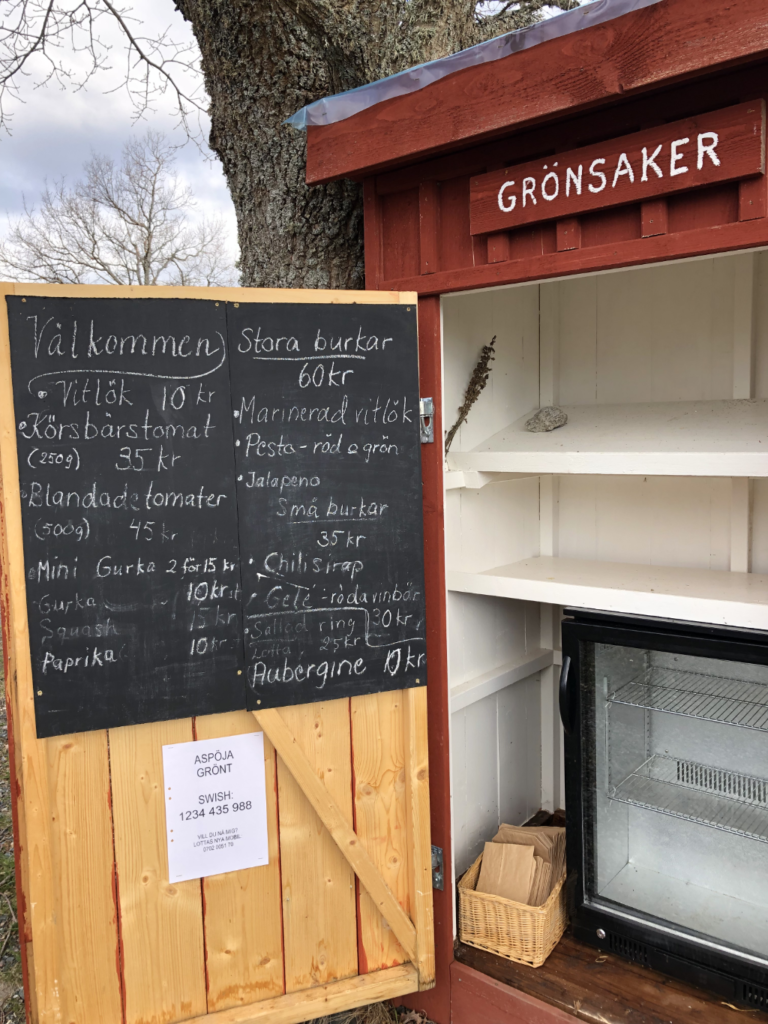 GRÖNSAKER
Välkommen
• Vitlök 10 kr
• Körsbärstomat
(250g) 35 kr
• Blandade tomater
(500g) 45 kr
• Mini Gurka 2 för 15 kr
Gurka 10kr st
Squash 15kr
Paprika 10kr
Stora burkar
60kr
• Marinerad vitlök
• Pesta - röd o grön
• Jalapeno
Små burkar
35kr
• Chilisirap
• Gelé - röda vinbär
Sallad ring 30kr
Lotta 25kr
Aubergine 10kr
ASPÖJA
GRÖNT
SWISH:
1234 435 988
VILL DU NÅ MIG?
LOTTAS NYA MOBIL: